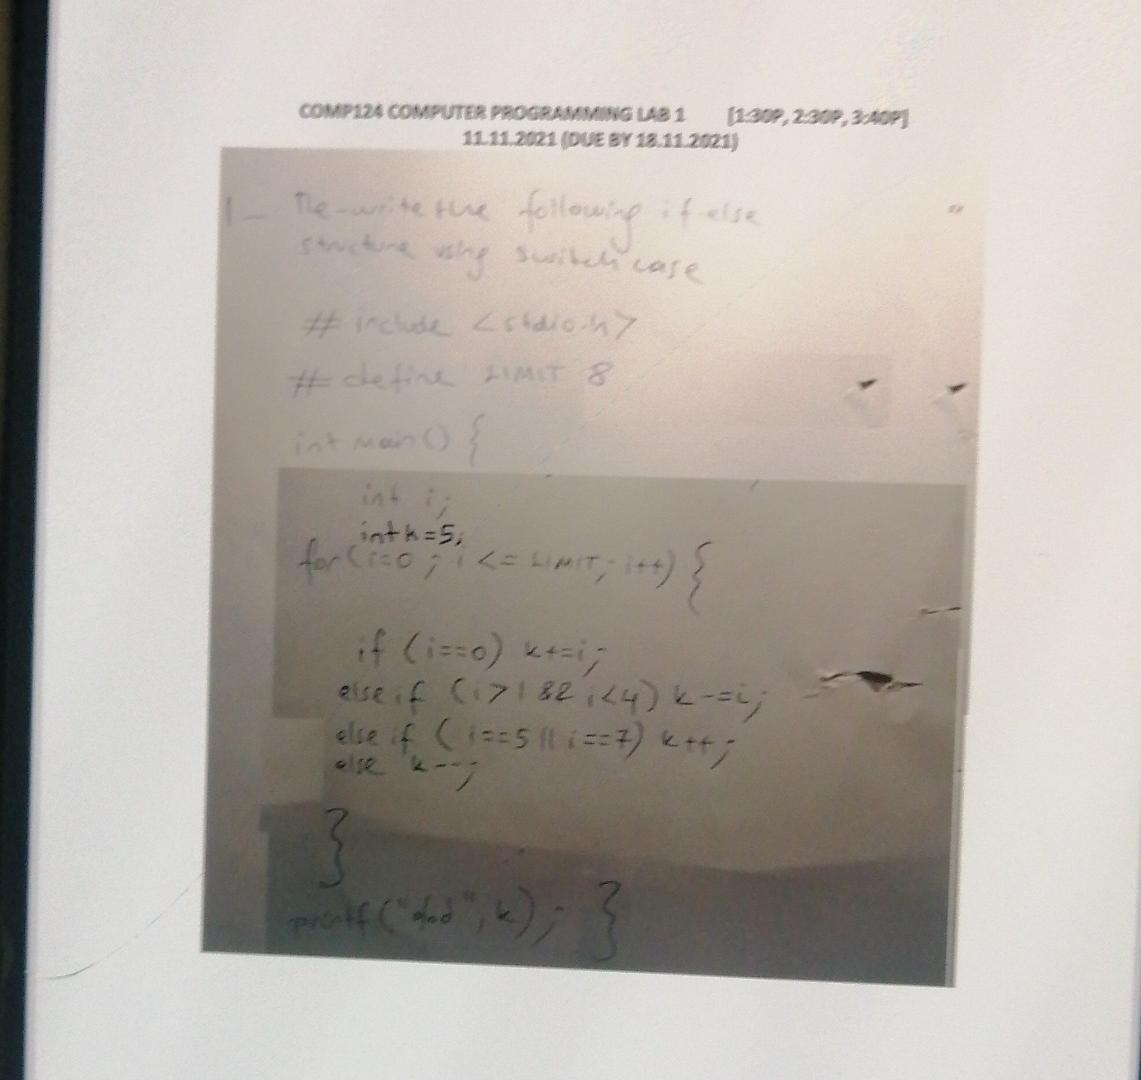 COMP124 COMPUTER PROGRAMMING LAB 1 [1:30P, 2:30P, 3:40P]
11.11.2021 (DUE BY 18.11.2021)
1- Re-write the following if-else
structure using switch case
# include <stdio.h>
# define LIMIT 8
int main() {
int i;
int k=5;
for(i=0; i <= LIMIT; i++) {
if (i==0) k+=i;
else if (i>1 && i<4) k-=i;
else if (i==5 || i==7) k++;
else k--;
}
printf("%d", k); }